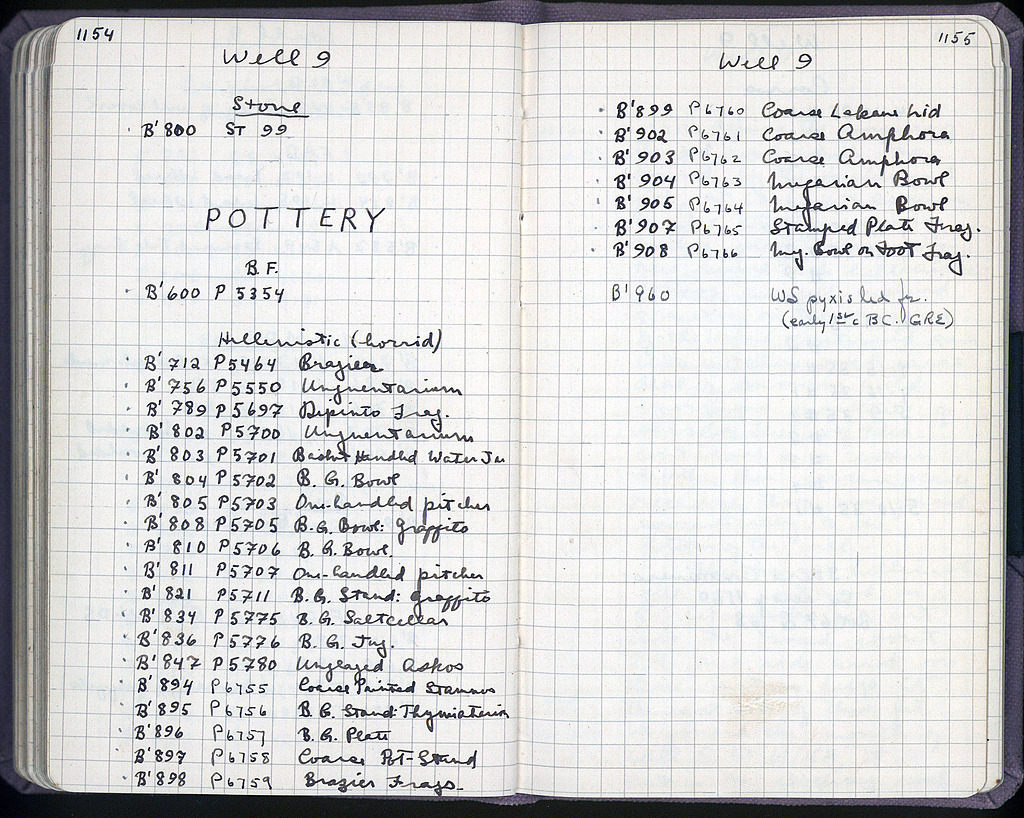 1154
Well 9
Stone
B' 800 ST 99
POTTERY
B.F.
B' 600 P 5354
Hellenistic (horrid)
B' 712 P 5464 Brazier
B' 756 P 5550 Unguentarium
B' 789 P 5697 Dipinto Frag.
B' 802 P 5700 Unguentarium
B' 803 P 5701 Basket Handled Water Jar
B' 804 P 5702 B.G. Bowl
B' 805 P 5703 One-handled pitcher
B' 808 P 5705 B.G. Bowl: graffito
B' 810 P 5706 B.G. Bowl.
B' 811 P 5707 One-handled pitcher
B' 821 P 5711 B.G. Stand: graffito
B' 834 P 5775 B.G. Saltcellar
B' 836 P 5776 B.G. Jug.
B' 847 P 5780 Unglazed Askos
B' 894 P 6755 Coarse Painted Stamnos
B' 895 P 6756 B.G. Stand: Thymiaterion
B' 896 P 6757 B.G. Plate
B' 897 P 6758 Coarse Pot-Stand
B' 898 P 6759 Brazier Frags.
1155
Well 9
B' 899 P 6760 Coarse Lekane Lid
B' 902 P 6761 Coarse Amphora
B' 903 P 6762 Coarse Amphora
B' 904 P 6763 Megarian Bowl
B' 905 P 6764 Megarian Bowl
B' 907 P 6765 Stamped Plate Frag.
B' 908 P 6766 Meg. Bowl on Foot Frag.
B' 960 WS pyxis lid fr.
(early 1st c BC. GRE)